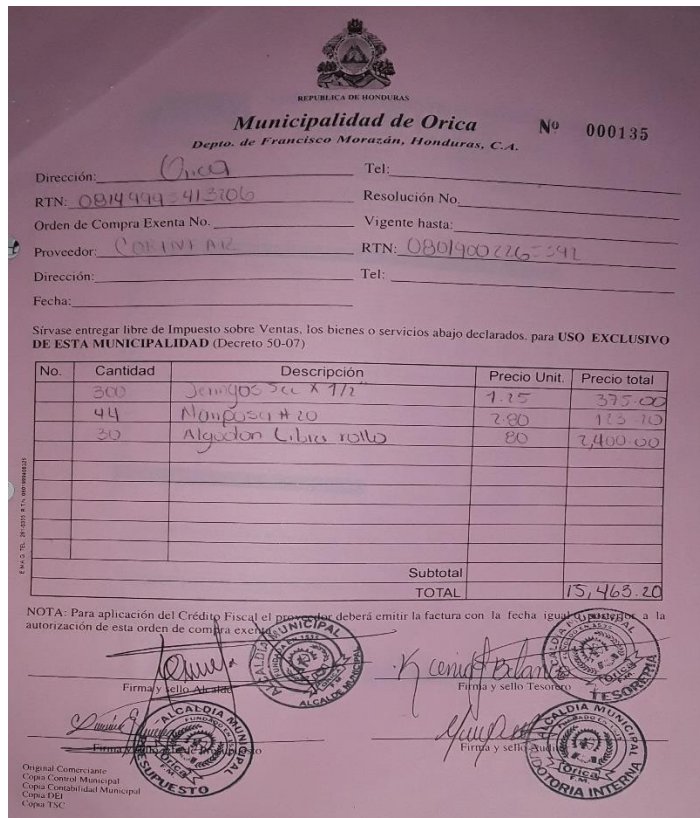 REPUBLICA DE HONDURAS
Municipalidad de Orica
Nº 000135
Depto. de Francisco Morazán, Honduras, C.A.
Dirección: Orica Tel:
RTN: 08149995413206 Resolución No.
Orden de Compra Exenta No. Vigente hasta:
Proveedor: CORINFAR RTN:
Dirección: Tel:
Fecha:
Sírvase entregar libre de Impuesto sobre Ventas, los bienes o servicios abajo declarados, para USO EXCLUSIVO
DE ESTA MUNICIPALIDAD (Decreto 50-07)
No. Cantidad Descripción Precio Unit. Precio total
300 5cc X 1/2" 1.25 375.00
44 Mariposa #20 2.80 123.20
30 Algodon Libra rollo 80 2,400.00
Subtotal
TOTAL 15,463.20
NOTA: Para aplicación del Crédito Fiscal el proveedor deberá emitir la factura con la fecha igual o posterior a la
autorización de esta orden de compra exenta
ALCALDIA MUNICIPAL
ALCALDE MUNICIPAL
Firma y sello Alcalde
TESORERIA
Firma y sello Tesorero
ALCALDIA MUNICIPAL
FUNDADO EN
Orica
F.M.
PRESUPUESTO
Firma y sello Auditor
ALCALDIA MUNICIPAL
Orica
F.M.
AUDITORIA INTERNA
Original Comerciante
Copia Control Municipal
Copia Contabilidad Municipal
Copia DEI
Copia TSC